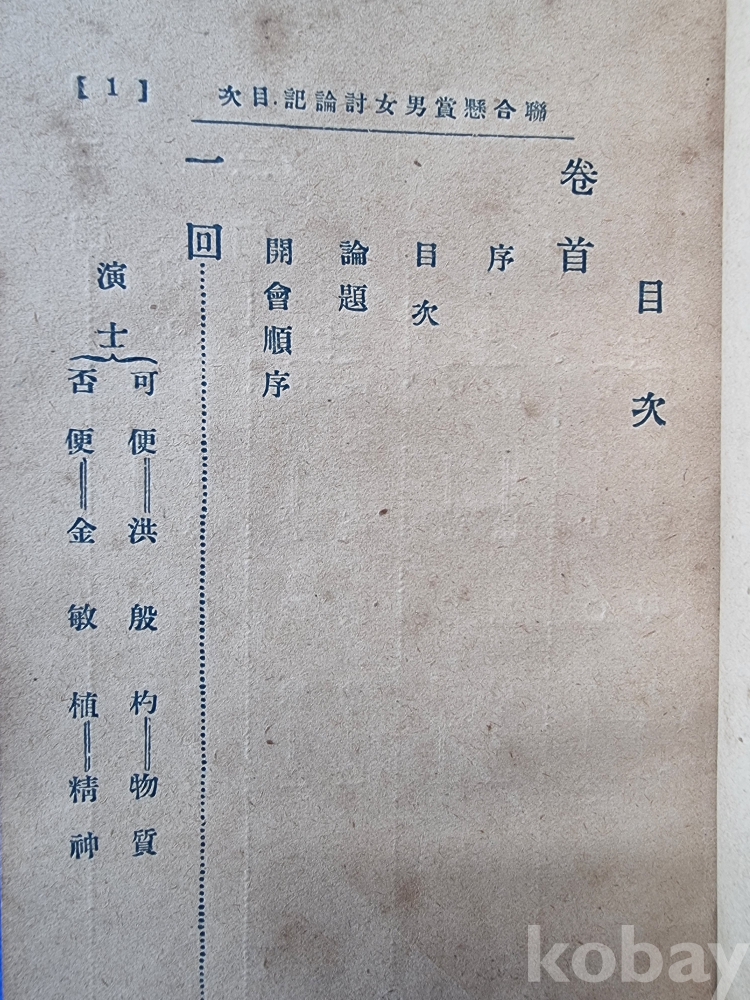 聯合懸賞男女討論記.目次
【1】
目次
卷首
序
目次
論題
開會順序
一回
演士
可便＝洪殷杓＝物質
否便＝金敏植＝精神
kobay